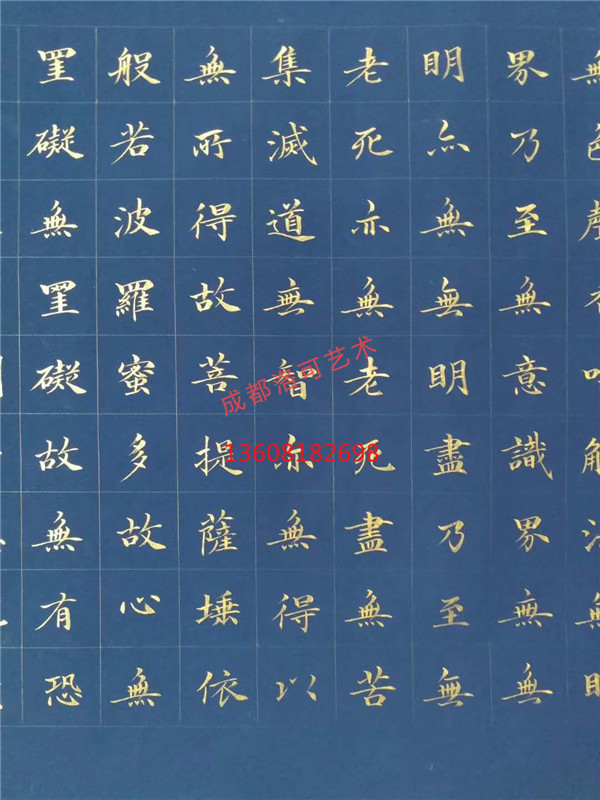 界乃至無意識界無無
明亦無無明盡乃至無
老死亦無老死盡無苦
集滅道無智亦無得以
無所得故菩提薩埵依
般若波羅蜜多故心無
罣礙無罣礙故無有恐
成都洛可艺术
13608182698